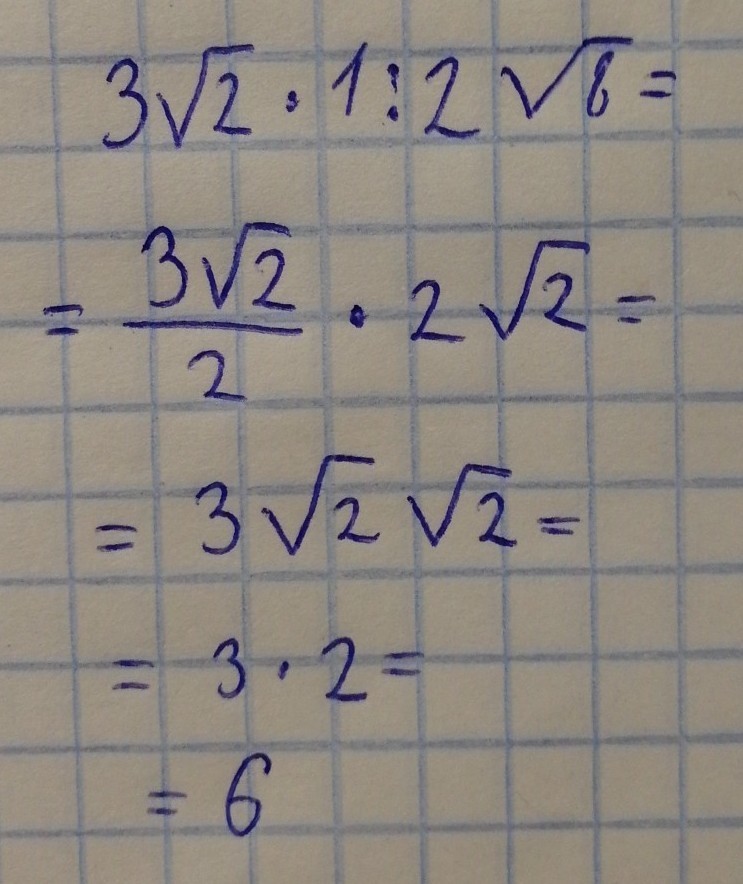 3√2 · 1 : 2 √8 =
= 3√2/2 · 2 √2 =
= 3 √2 √2 =
= 3 · 2 =
= 6